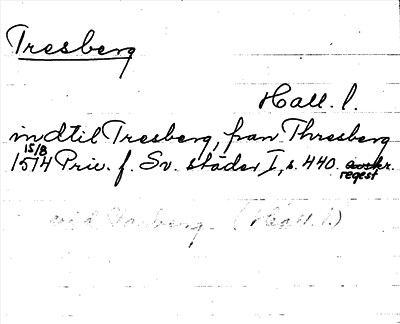 Tresberg
Hall. l.
indtil Tresberg, fran Thresberg
15/8
1514 Priv. f. Sv. städer I, s. 440. avskr.
regest
vid Varberg. (Hall. l.)